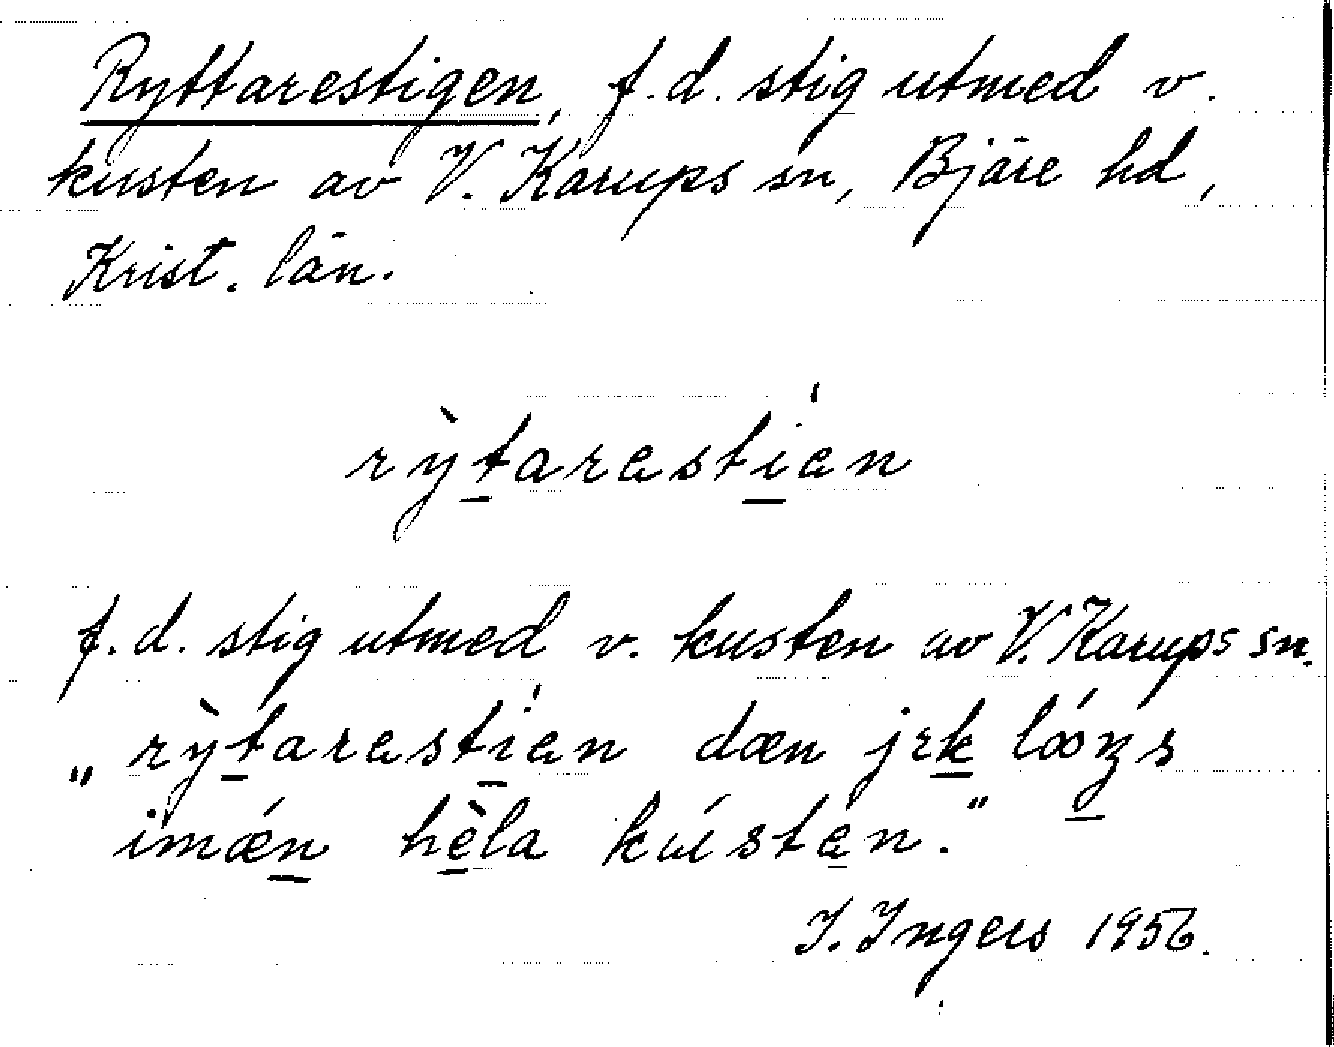 Ryttarestigen, f.d. stig utmed v.
kusten av V. Karups sn, Bjäre hd,
Krist. län.
rỳtarastián
f.d. stig utmed v. kusten av V. Karups sn.
„rỳtarastián dæn jɛk lóŋs
imǽn hèla kústan."
I. Ingers 1956.